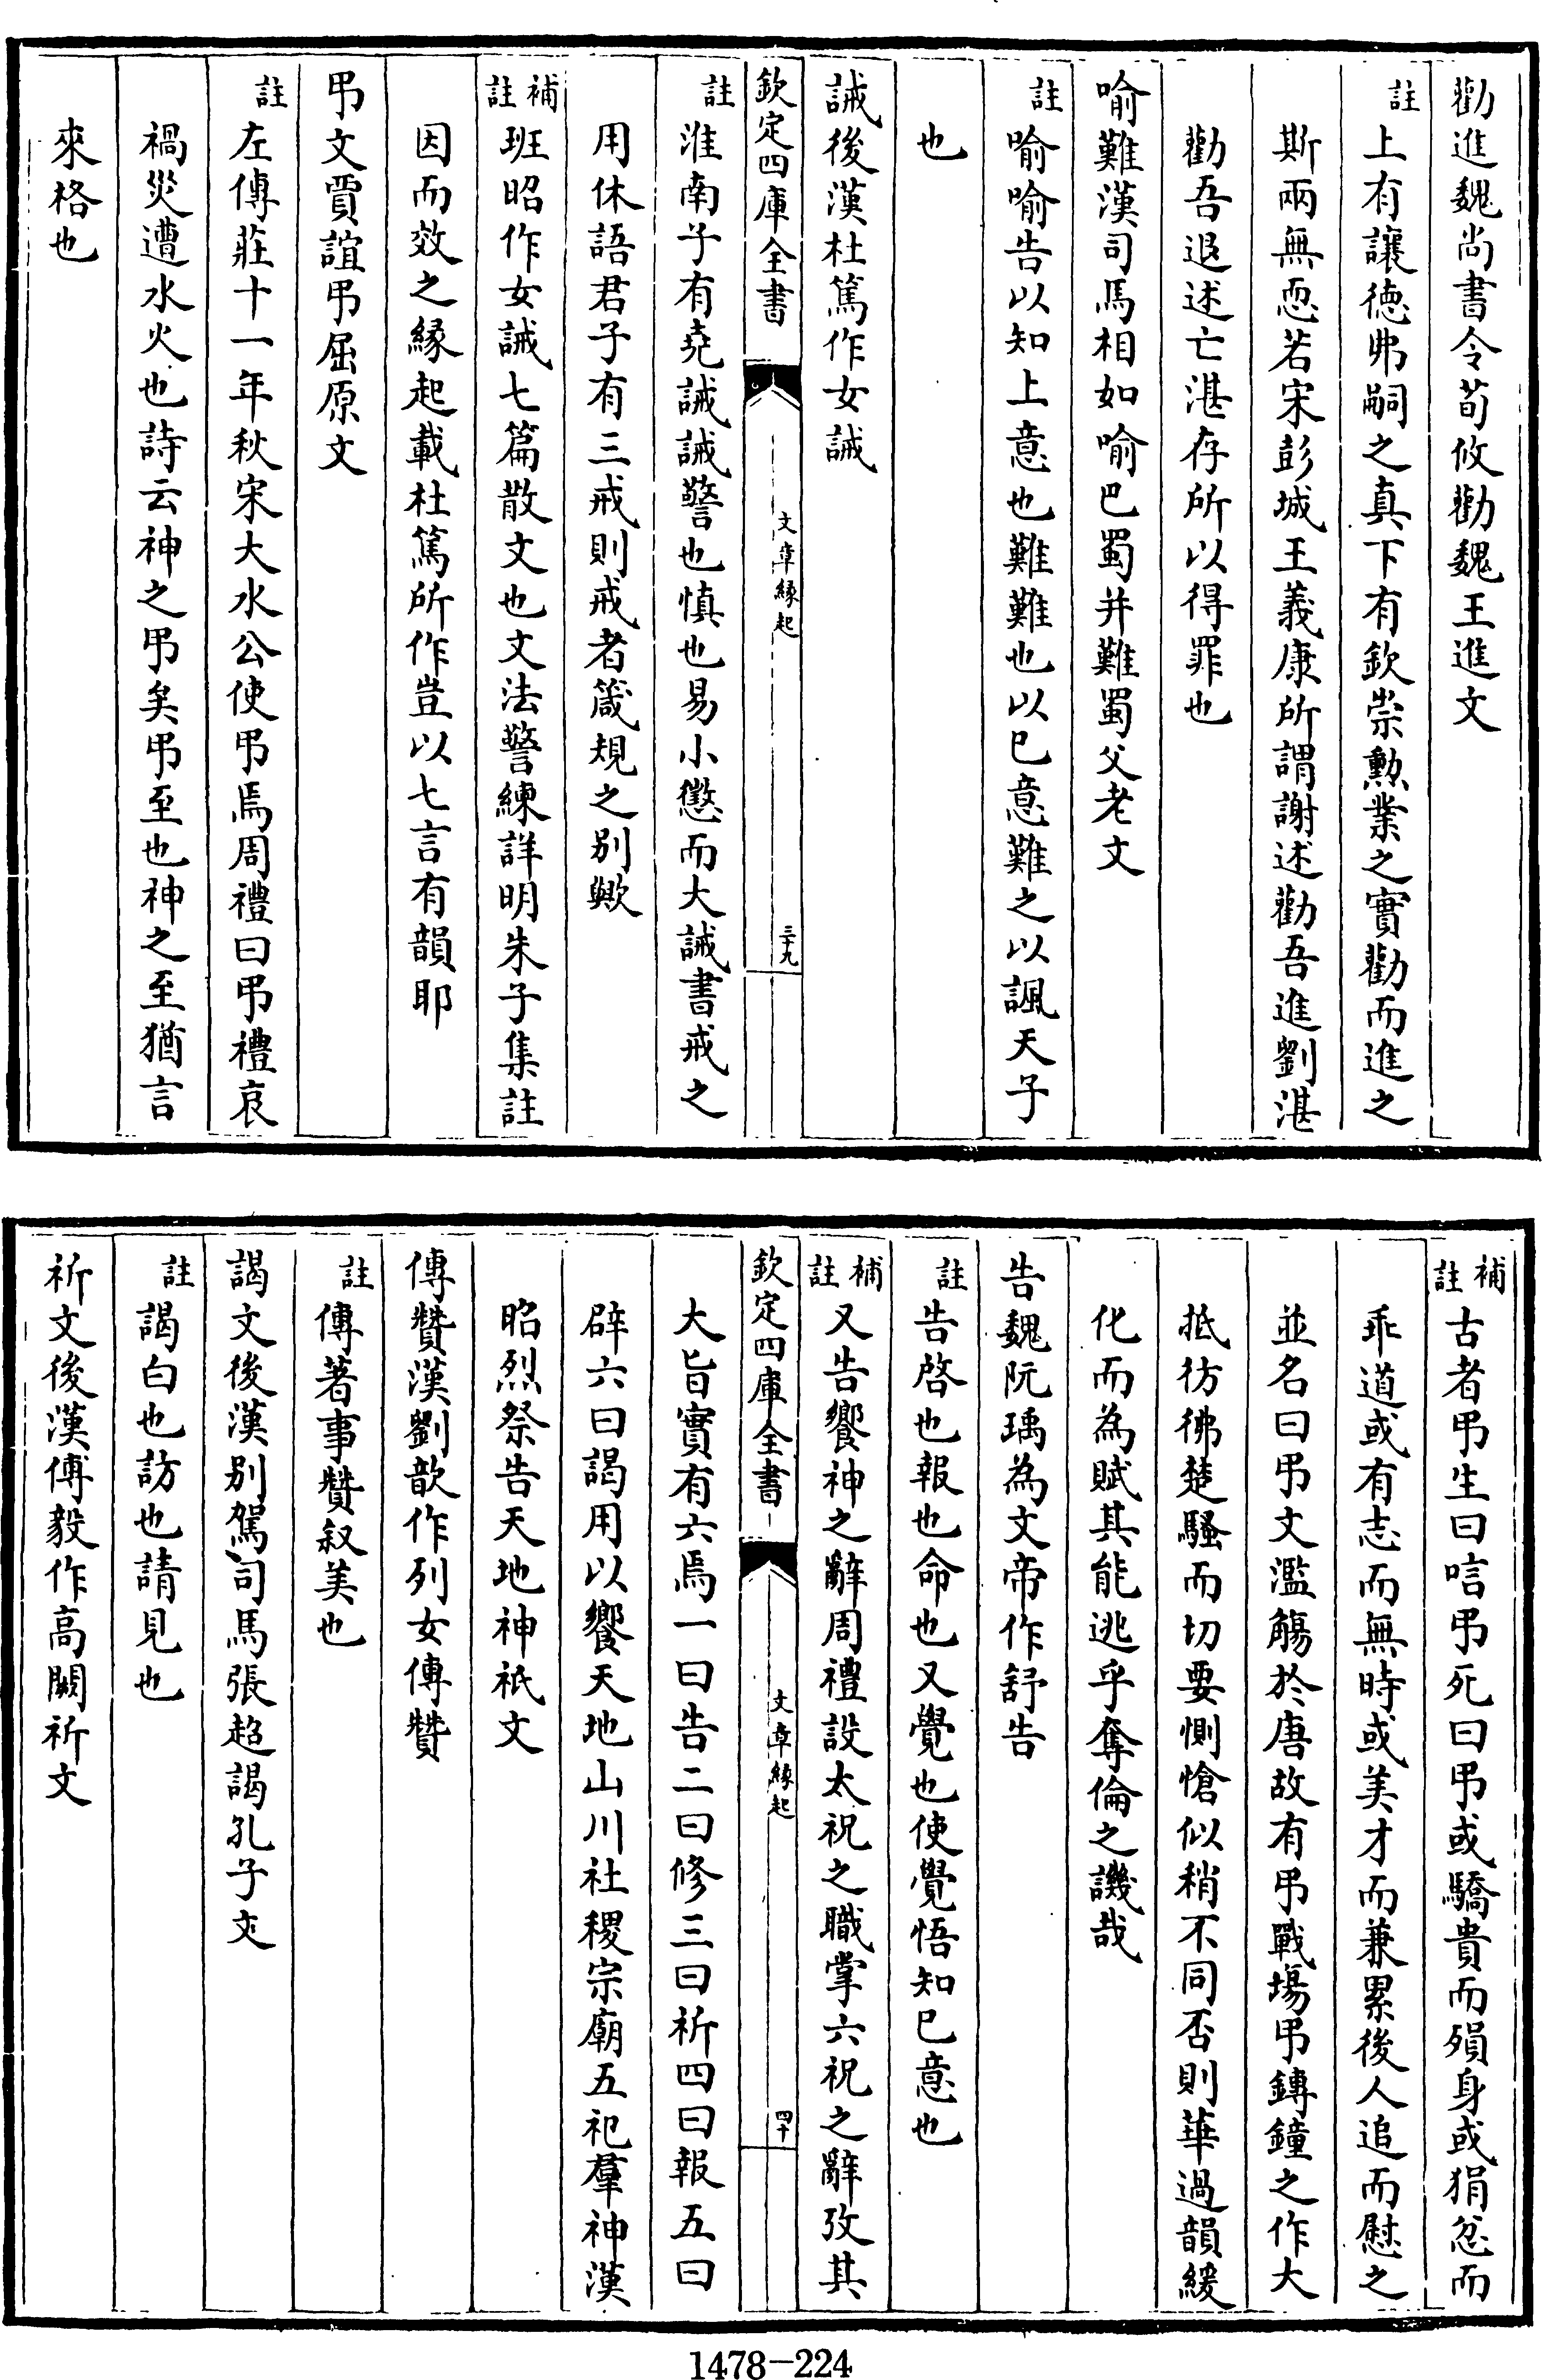 勸進魏尚書令荀攸勸魏王進文
註上有讓德弗嗣之真下有欽崇勲業之實勸而進之
斯兩無恧若宋彭城王義康所謂謝述勸吾進劉湛
勸吾退述亡湛存所以得罪也
喻難漢司馬相如喻巴蜀并難蜀父老文
註喻喻告以知上意也難難也以已意難之以諷天子
也
誡後漢杜篤作女誡
欽定四庫全書
文章縁起
三十九
註淮南子有堯誡誡警也慎也易小懲而大誡書戒之
用休語君子有三戒則戒者箴規之别歟
補註班昭作女誡七篇散文也文法警練詳明朱子集註
因而效之縁起載杜篤所作豈以七言有韻耶
弔文賈誼弔屈原文
註左傳莊十一年秋宋大水公使弔焉周禮曰弔禮哀
禍災遭水火也詩云神之弔矣弔至也神之至猶言
來格也
補註古者弔生曰唁弔死曰弔或驕貴而殞身或狷忿而
乖道或有志而無時或美才而兼累後人追而慰之
並名曰弔文濫觴於唐故有弔戰場弔鎛鐘之作大
抵彷彿楚騷而切要惻愴似稍不同否則華過韻緩
化而為賦其能逃乎奪倫之譏哉
告魏阮瑀為文帝作舒告
註告啓也報也命也又覺也使覺悟知已意也
補註又告饗神之辭周禮設太祝之職掌六祝之辭攷其
欽定四庫全書
文章縁起
四十
大旨實有六焉一曰告二曰修三曰祈四曰報五曰
辟六曰謁用以饗天地山川社稷宗廟五祀羣神漢
昭烈祭告天地神祇文
傳贊漢劉歆作列女傳贊
註傳著事贊叙美也
謁文後漢别駕司馬張超謁孔子文
註謁白也訪也請見也
祈文後漢傅毅作高闕祈文
1478-224